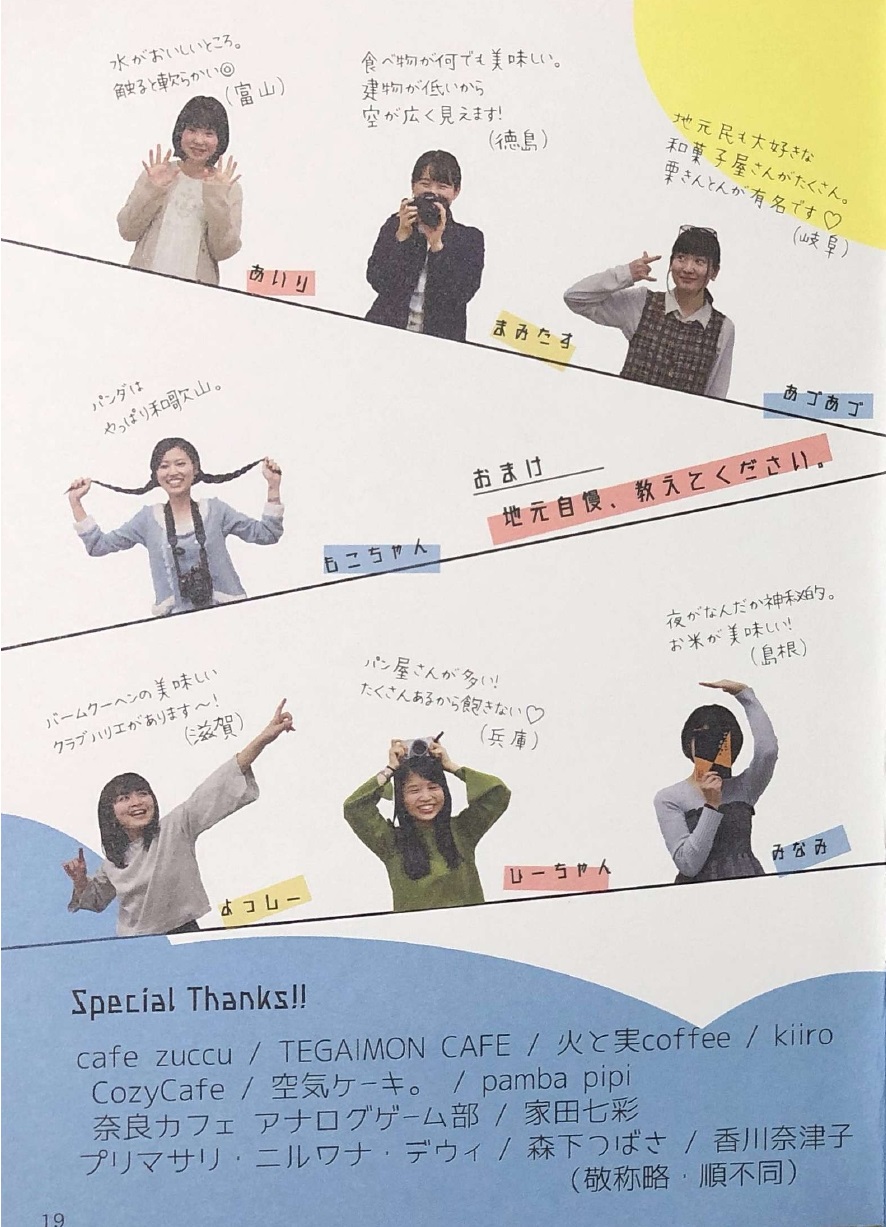 水がおいしいところ。
触ると軟らかい◎
(富山)
あいり
食べ物が何でも美味しい。
建物が低いから
空が広く見えます!
(徳島)
まみたす
地元民も大好きな
和菓子屋さんがたくさん。
栗きんとんが有名です♡
(岐阜)
あづあづ
パンダは
やっぱり和歌山。
もこちゃん
おまけ
地元自慢、教えてください。
バームクーヘンの美味しい
クラブハリエがあります〜!
(滋賀)
よっしー
パン屋さんが多い!
たくさんあるから飽きない♡
(兵庫)
ひーちゃん
夜がなんだか神秘的。
お米が美味しい!
(島根)
みなみ
Special Thanks!!
cafe zuccu / TEGAIMON CAFE / 火と実coffee / kiiro
CozyCafe / 空気ケーキ。 / pamba pipi
奈良カフェ アナログゲーム部 / 家田七彩
プリマサリ・ニルワナ・デウィ / 森下つばさ / 香川奈津子
(敬称略・順不同)
19